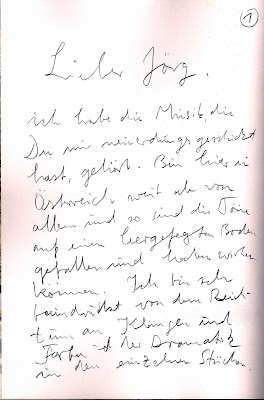 1
Lieber Jörg,
ich habe die Musik, die
Du mir neuerdings geschickt
hast, gehört. Bin hier in
Österreich, weit ab von
allem und so sind die Töne
auf einen leergefegten Boden
gefallen und haben wirken
können. Ich bin sehr
beeindruckt von dem Reich-
tum an Klängen und
Farben & der Dramatik
in den einzelnen Stücken.